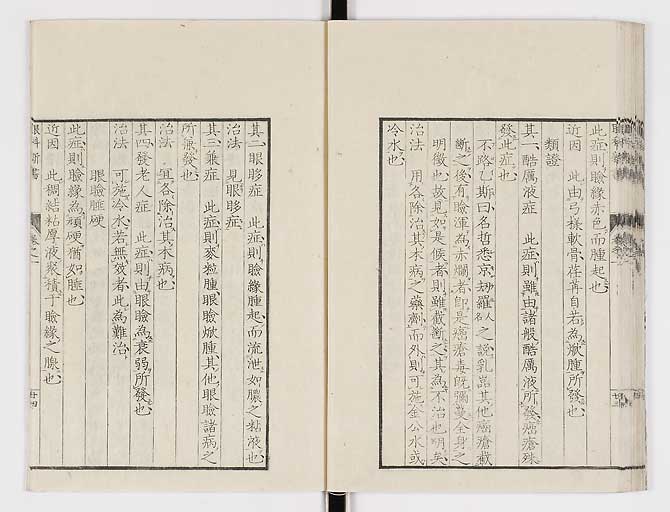 此症則瞼緣赤色而腫起也
近因　此由弓樣軟骨荏苒自若為焮腫所發也
類證
其一酷厲液症　此症則雖由諸般酷厲液所發癌瘡殊
發此症也
不路乙斯曰名哲悉京刼羅人名之說乳嵓其他癌瘡截
斷之後有瞼渾為赤爛者即是癌瘡毒既彌蔓全身之
明徵也故見如是候者則雖截斷之其為不治也明矣
治法　用各除治其本病之藥劑而外則可施金公水或
冷水也
其二眼眵症　此症則瞼緣腫起而流泄如膿之粘液也
治法　見眼眵症
其三兼症　此症則麥粒腫眼瞼焮腫其他眼瞼諸病之
所兼發也
治法　宜各除治其本病也
其四發老人症　此症則由眼瞼為衰弱所發也
治法　可施冷水若無效者此為難治
眼瞼腄硬
此症則瞼緣為頑硬猶如腄也
近因　此稠結粘厚液聚積于瞼緣之腺也
眼科新書　卷之一　廿四